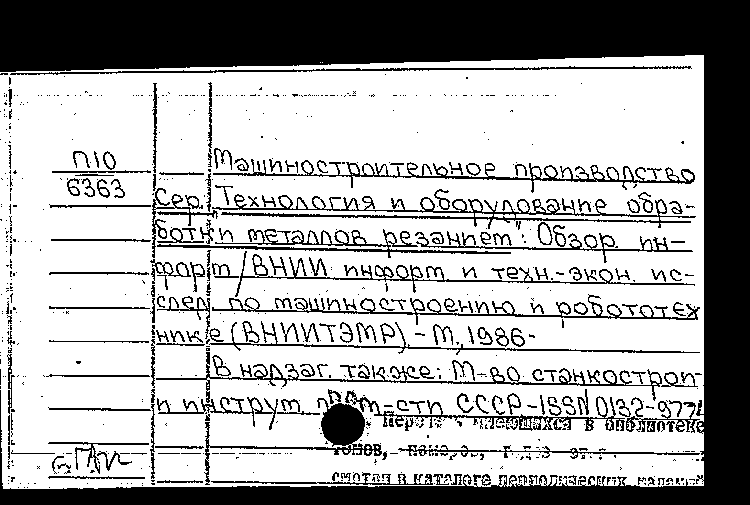 П10
6363
Машиностроительное производство
Сер. "Технология и оборудование обра-
ботки металлов резанием": Обзор. ин-
форм / ВНИИ информ и техн.-экон. ис-
след. по машиностроению и робототех
нике (ВНИИТЭМР). - М., 1986-
В надзаг. также: М-во станкостроит
и инструм пром-сти СССР -ISSN 0132-977
имеющихся в библиотеке
томов,
смотри в каталоге периодических изданий